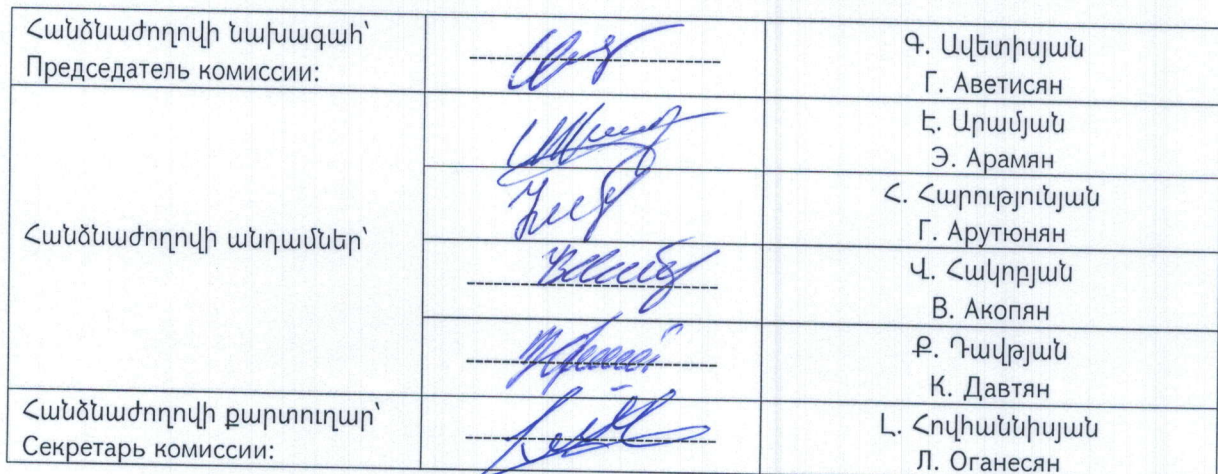 Հանձնաժողովի նախագահ՝
Председатель комиссии:
Գ. Ավետիսյան
Г. Аветисян
Է. Արամյան
Э. Арамян
Հանձնաժողովի անդամներ՝
Հ. Հարությունյան
Г. Арутюнян
Վ. Հակոբյան
В. Акопян
Ք. Դավթյան
К. Давтян
Հանձնաժողովի քարտուղար՝
Секретарь комиссии:
Լ. Հովհաննիսյան
Л. Оганесян